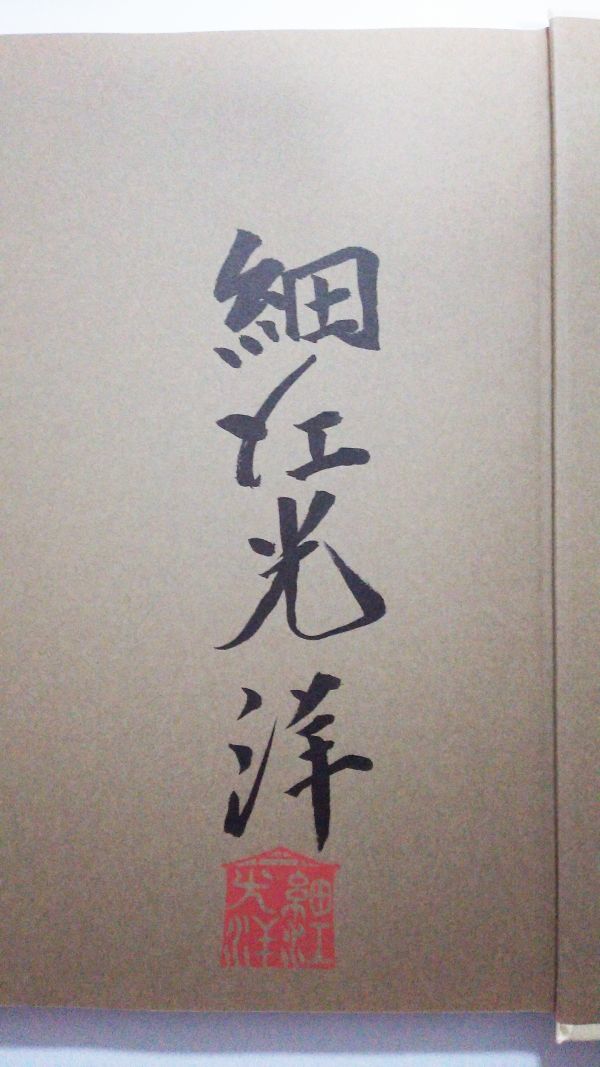 細江光洋
細江
光洋